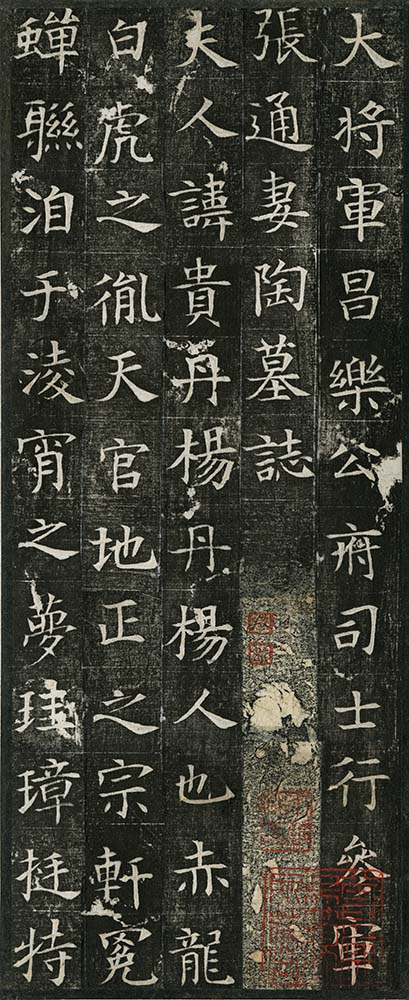 大將軍昌樂公府司士行叅軍
張通妻陶墓誌
夫人諱貴丹楊丹楊人也赤龍
白虎之胤天官地正之宗軒冕
蟬聯洎于淩宵之夢珪璋挺特